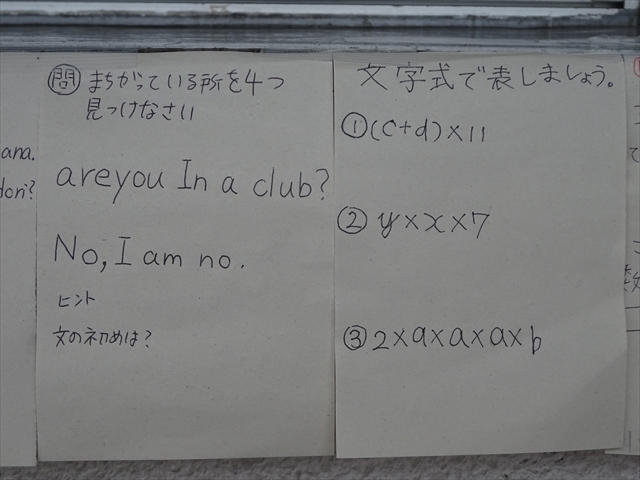 ana.
dori?
問 まちがっている所を4つ
見つけなさい
areyou In a club?
No, I am no.
ヒント
文の初めは?
文字式で表しましょう。
① (c+d)×11
② y×x×7
③ 2×a×a×a×b